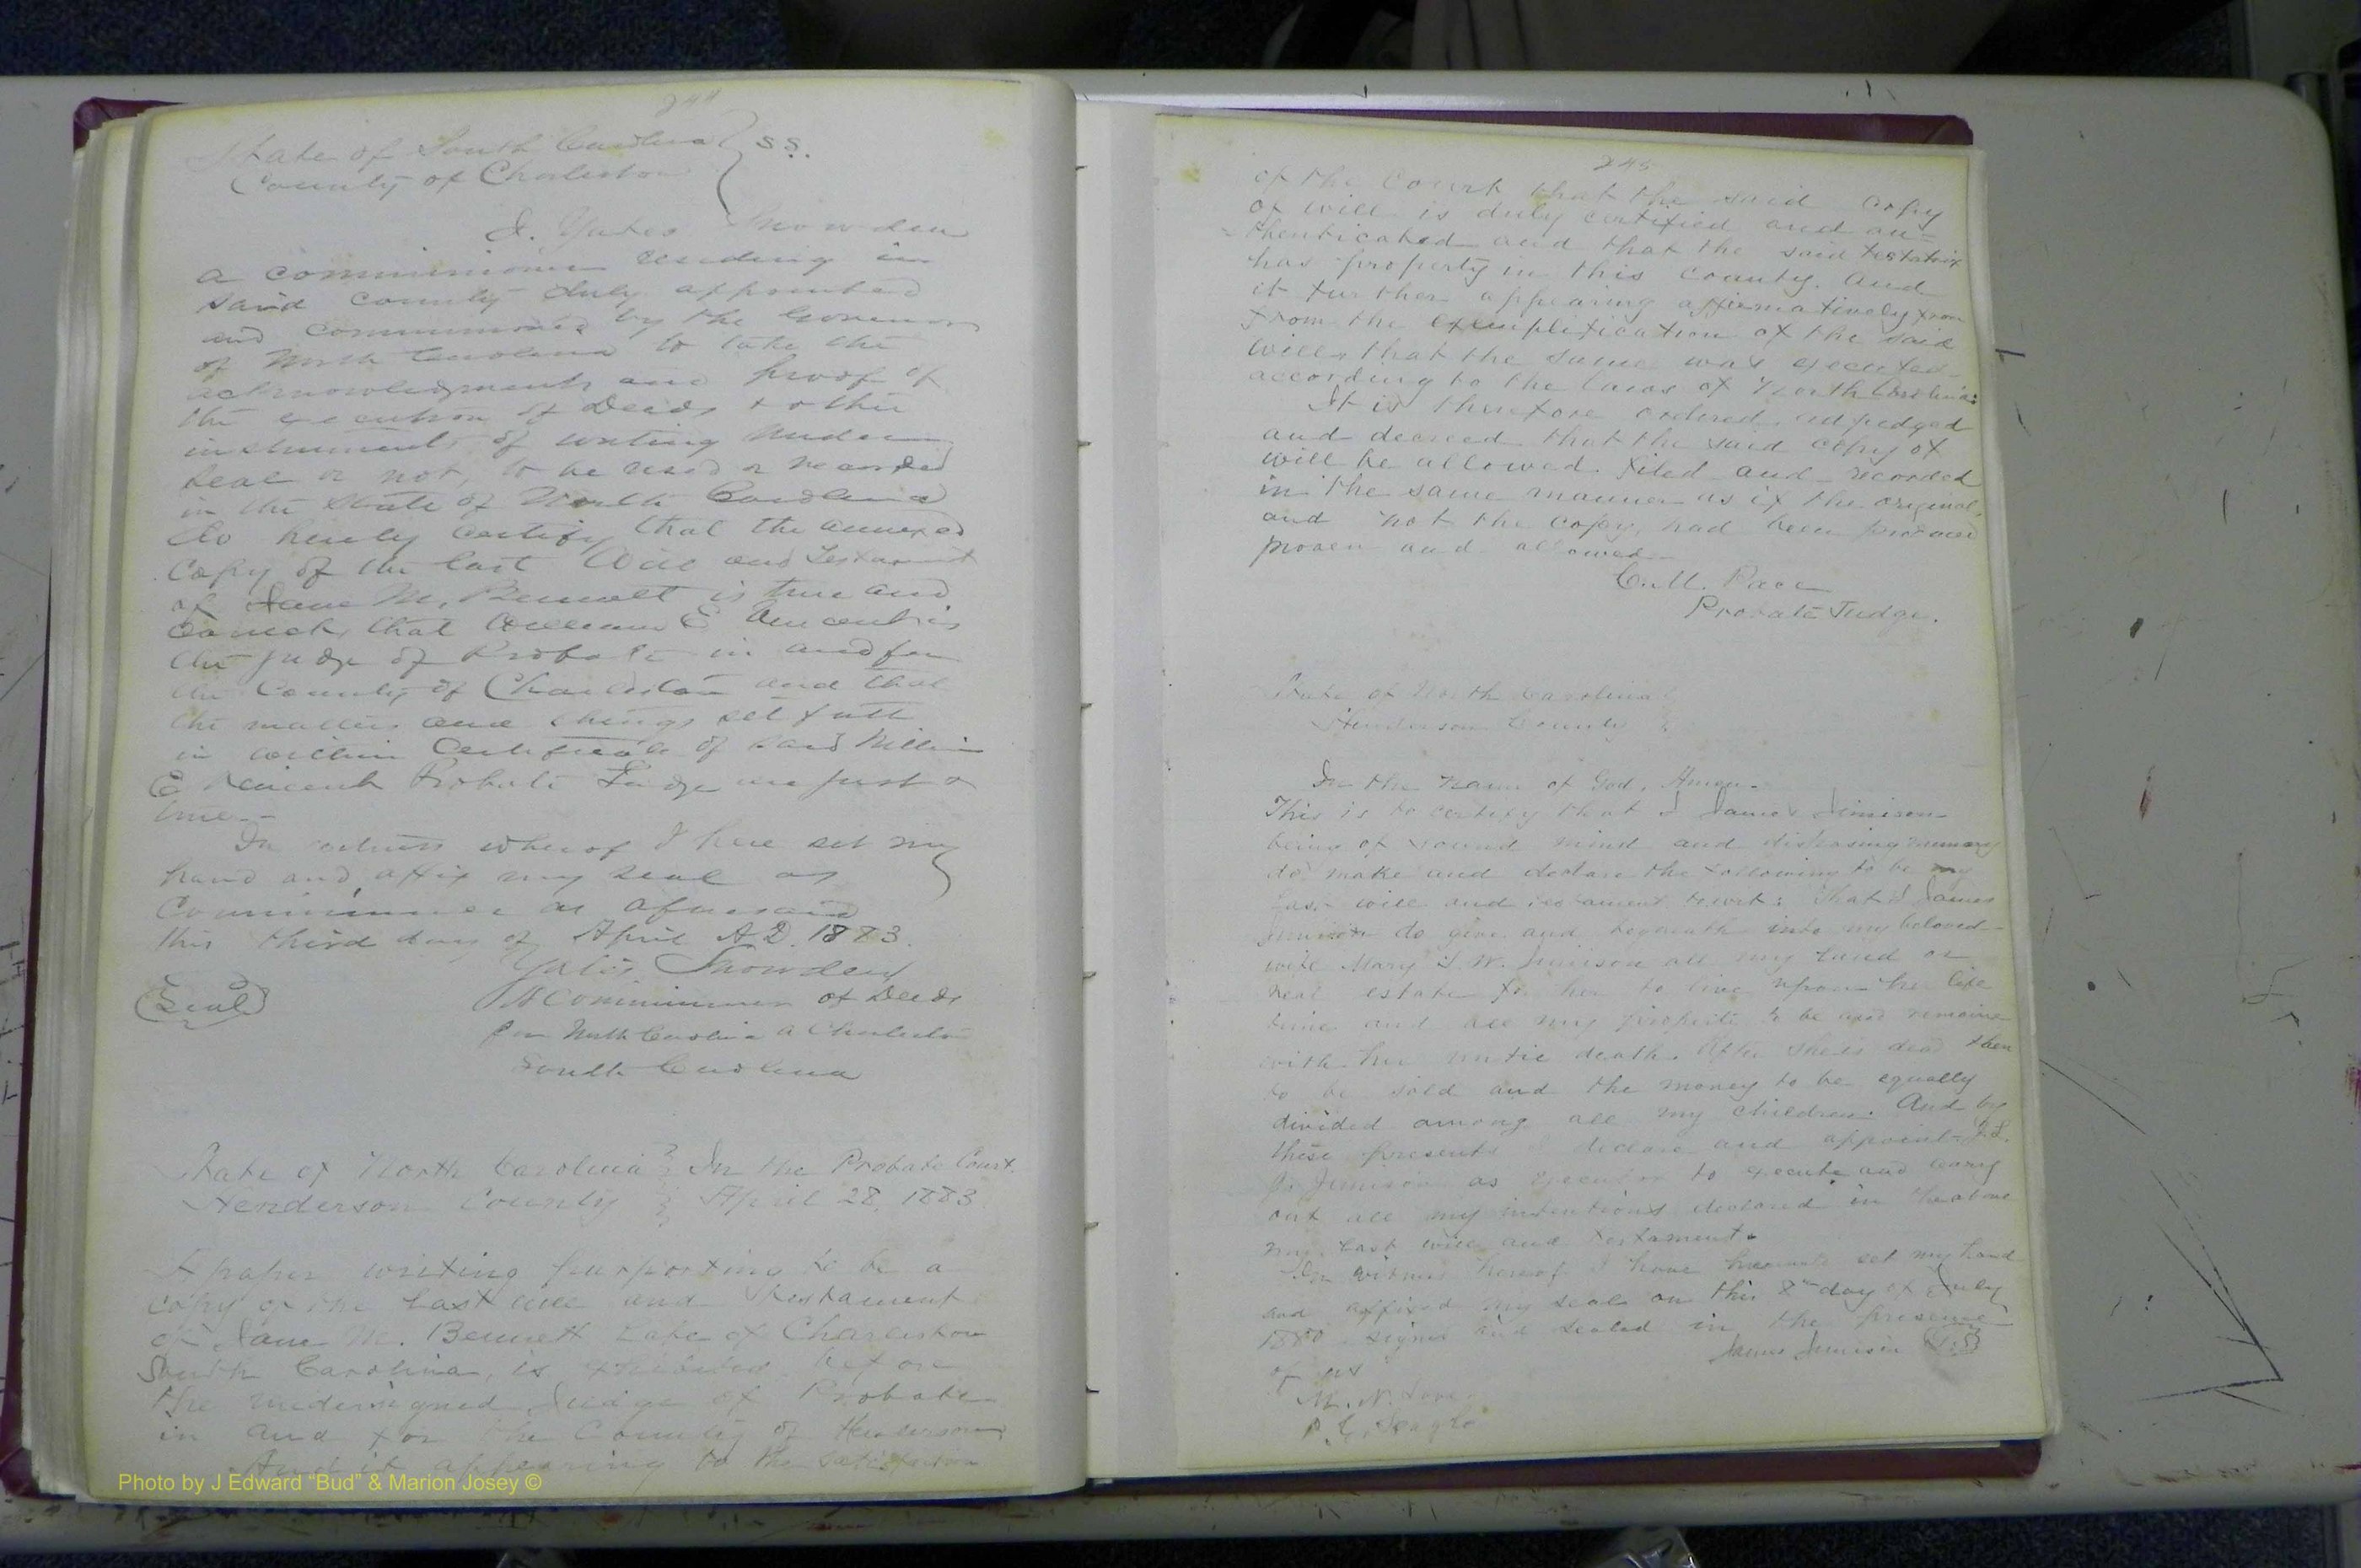 244
State of South Carolina } SS.
County of Charleston
I. Yates Snowden
a commissioner residing in
said County duly appointed
and commissioned by the Governor
of North Carolina to take the
acknowledgments and proof of
the execution of Deeds & other
instruments of writing under
seal or not, to be used or recorded
in the State of North Carolina
do hereby certify that the annexed
copy of the last Will and Testament
of Jane M. Bennett is true and
correct, that William E Vincent is
the judge of Probate in and for
the County of Charleston and that
the matters and things set forth
in within Certificate of said William
E Vincent Probate Judge are just &
true.-
In witness whereof I here set my
hand and affix my seal as
Commissioner as aforesaid
this third day of April A.D. 1883.
Yates Snowden
(Seal) A Commissioner of Deeds
for North Carolina a Charleston
South Carolina
State of North Carolina } In the Probate Court.
Henderson County } April 28, 1883
A paper writing purporting to be a
copy of the last will and testament
of Jane M. Bennett late of Charleston
South Carolina, is exhibited before
the undersigned Judge of Probate
in and for the County of Henderson,
And it appearing to the satisfaction
245
of the Court that the said copy
of will is duly certified and au=
=thenticated and that the said testatrix
has property in this county. And
it further appearing affirmatively from
from the exemplification of the said
will, that the same was executed
according to the laws of North Carolina:
It is therefore ordered, adjudged
and decreed that the said copy of
will be allowed. filed and recorded
in the same manner as if the original,
and not the copy, had been produced
proven and allowed.
C. M. Pace
Probate Judge.
State of North Carolina }
Henderson County }
In the name of God, Amen.
This is to certify that I James Jimison
being of sound mind and disposing memory
do make and declare the following to be my
last will and testament to wit: That I James
Jimison do give and bequeath into my beloved
wife Mary W. Jimison all my land or
real estate for her to live upon her life
time and all my property to be and remain
with her until death. After she is dead then
to be sold and the money to be equally
divided among all my children. And by
these presents declare and appoint J. L.
Jimison as executor to execute and carry
out all my intentions declared in the above
my last will and testament.
In witness hereof I have hereunto set my hand
and affixed my seal on this 8th day of July
1880 signed and sealed in the presence
of us James Jimison (L.S.)
M. N. Love
P.
Photo by J Edward “Bud” & Marion Josey ©